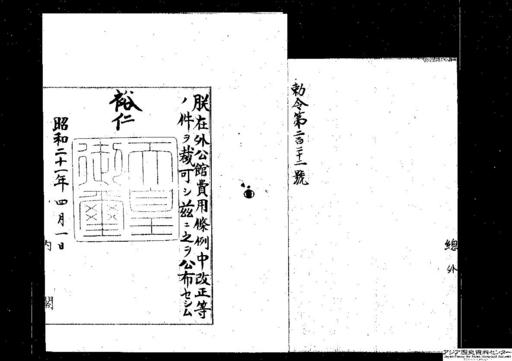 勅令第二百二十一號
朕在外公館費用條例中改正等
ノ件ヲ裁可シ茲ニ之ヲ公布セシム
裕仁
天皇御璽
昭和二十一年四月一日
內閣
總
外
アジア歴史資料センター